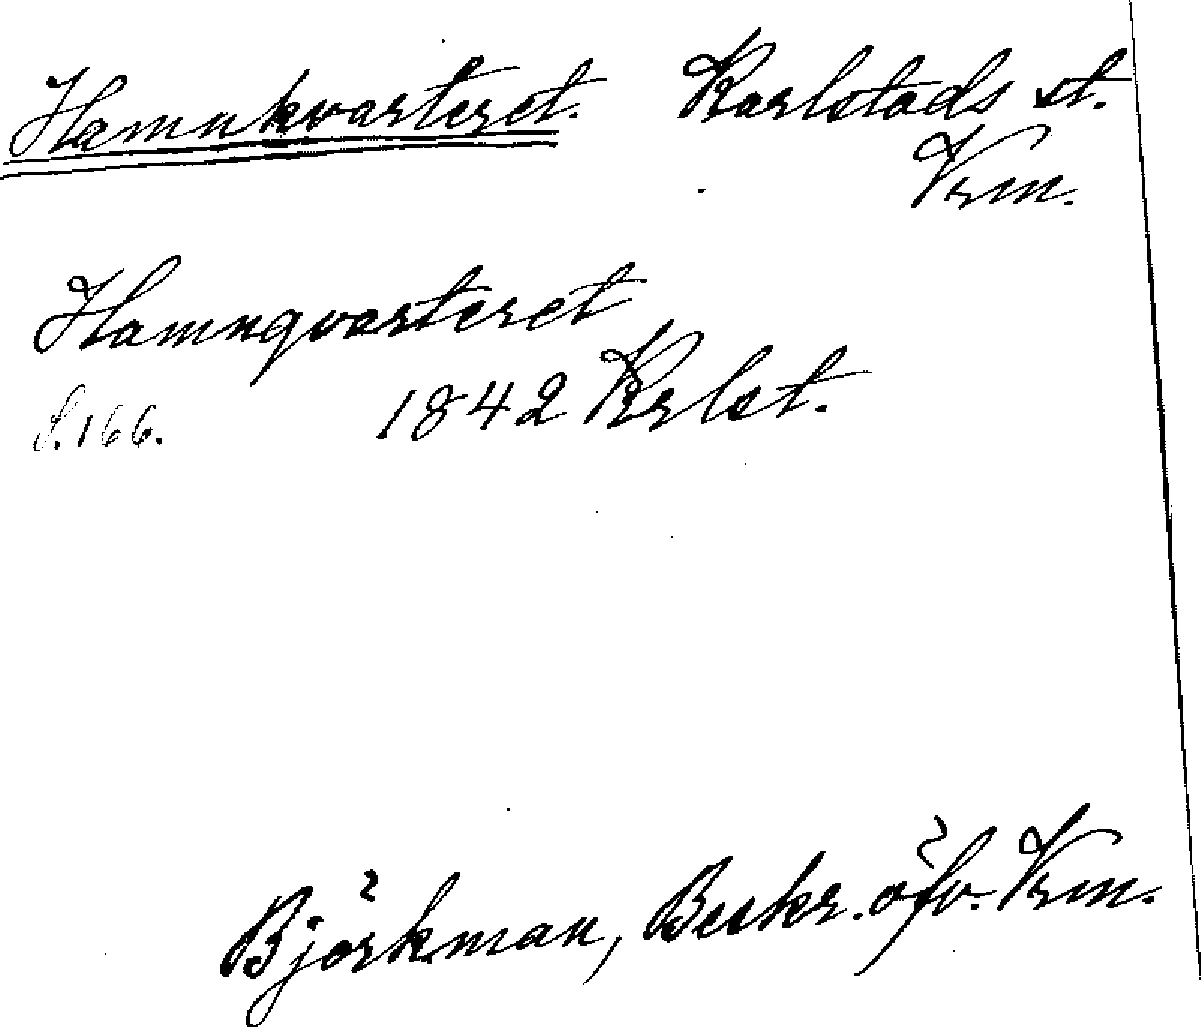 Hamnkvarteret. Karlstads st.
Vrm.
Hamnqvarteret
S. 166. 1842 Krlst.
Björkman, Beskr. öfv. Vrm.